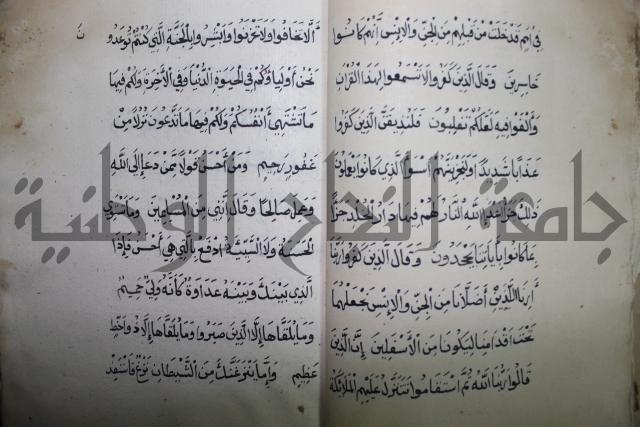 في امم قد خلت من قبلهم من الجن والانس انهم كانوا
خاسرين وقال الذين كفروا لا تسمعوا لهذا القرآن
والغوا فيه لعلكم تغلبون فلنذيقن الذين كفروا
عذابا شديدا ولنجزينهم اسوأ الذي كانوا يعملون
ذلك جزاء اعداء الله النار لهم فيها دار الخلد جزاء
بما كانوا بآياتنا يجحدون وقال الذين كفروا ربنا
ارنا اللذين أضلانا من الجن والانس نجعلهما
تحت اقدامنا ليكونا من الأسفلين ان الذين
قالوا ربنا الله ثم استقاموا تتنزل عليهم الملائكة
ألا تخافوا ولا تحزنوا وابشروا بالجنة التي كنتم توعدون
نحن أولياؤكم في الحيوة الدنيا وفي الآخرة ولكم فيها
ما تشتهي أنفسكم ولكم فيها ما تدعون نزلا من
غفور رحيم ومن أحسن قولا ممن دعا إلى الله
وعمل صالحا وقال انني من المسلمين وما تستوي
الحسنة ولا السيئة ادفع بالتي هي أحسن فإذا
الذي بينك وبينه عداوة كأنه ولي حميم
وما يلقاها إلا الذين صبروا وما يلقاها إلا ذو حظ
عظيم وإما ينزغنك من الشيطان نزغ فاستعذ
جامعة النجاح الوطنية